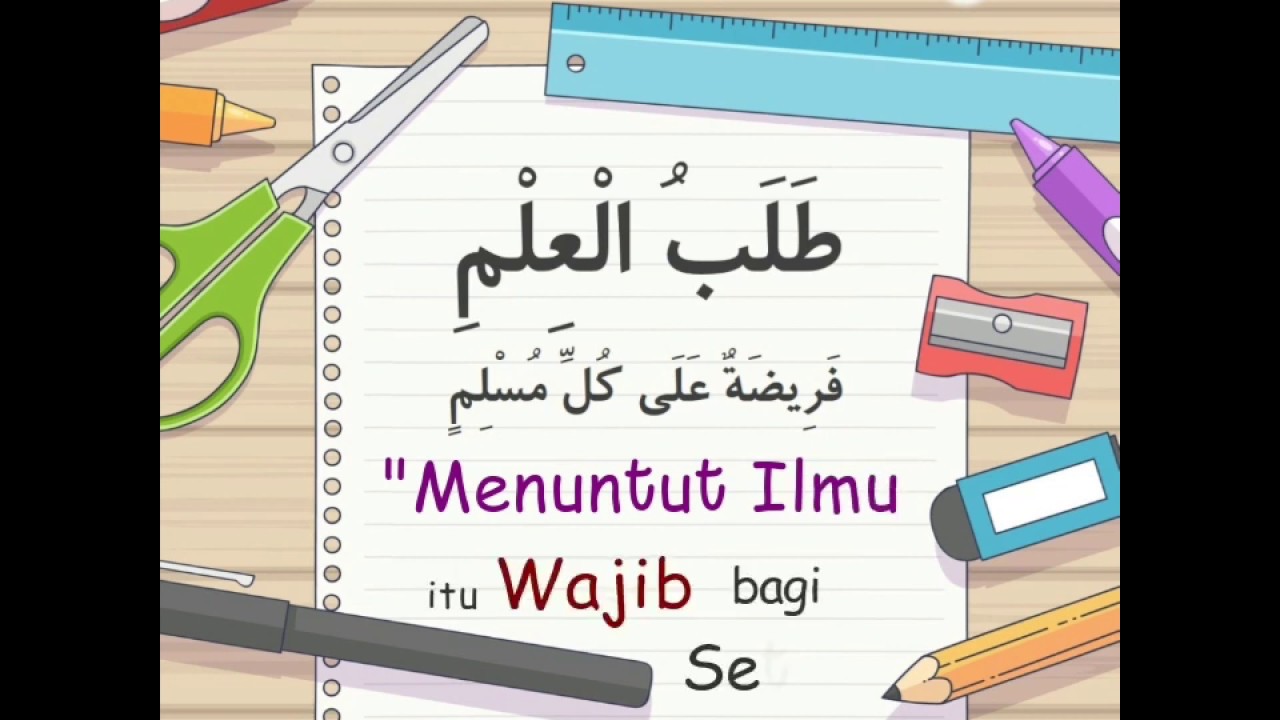 طَلَبُ الْعِلْمِ
فَرِيضَةٌ عَلَى كُلِّ مُسْلِمٍ
"Menuntut Ilmu
itu Wajib bagi
Set